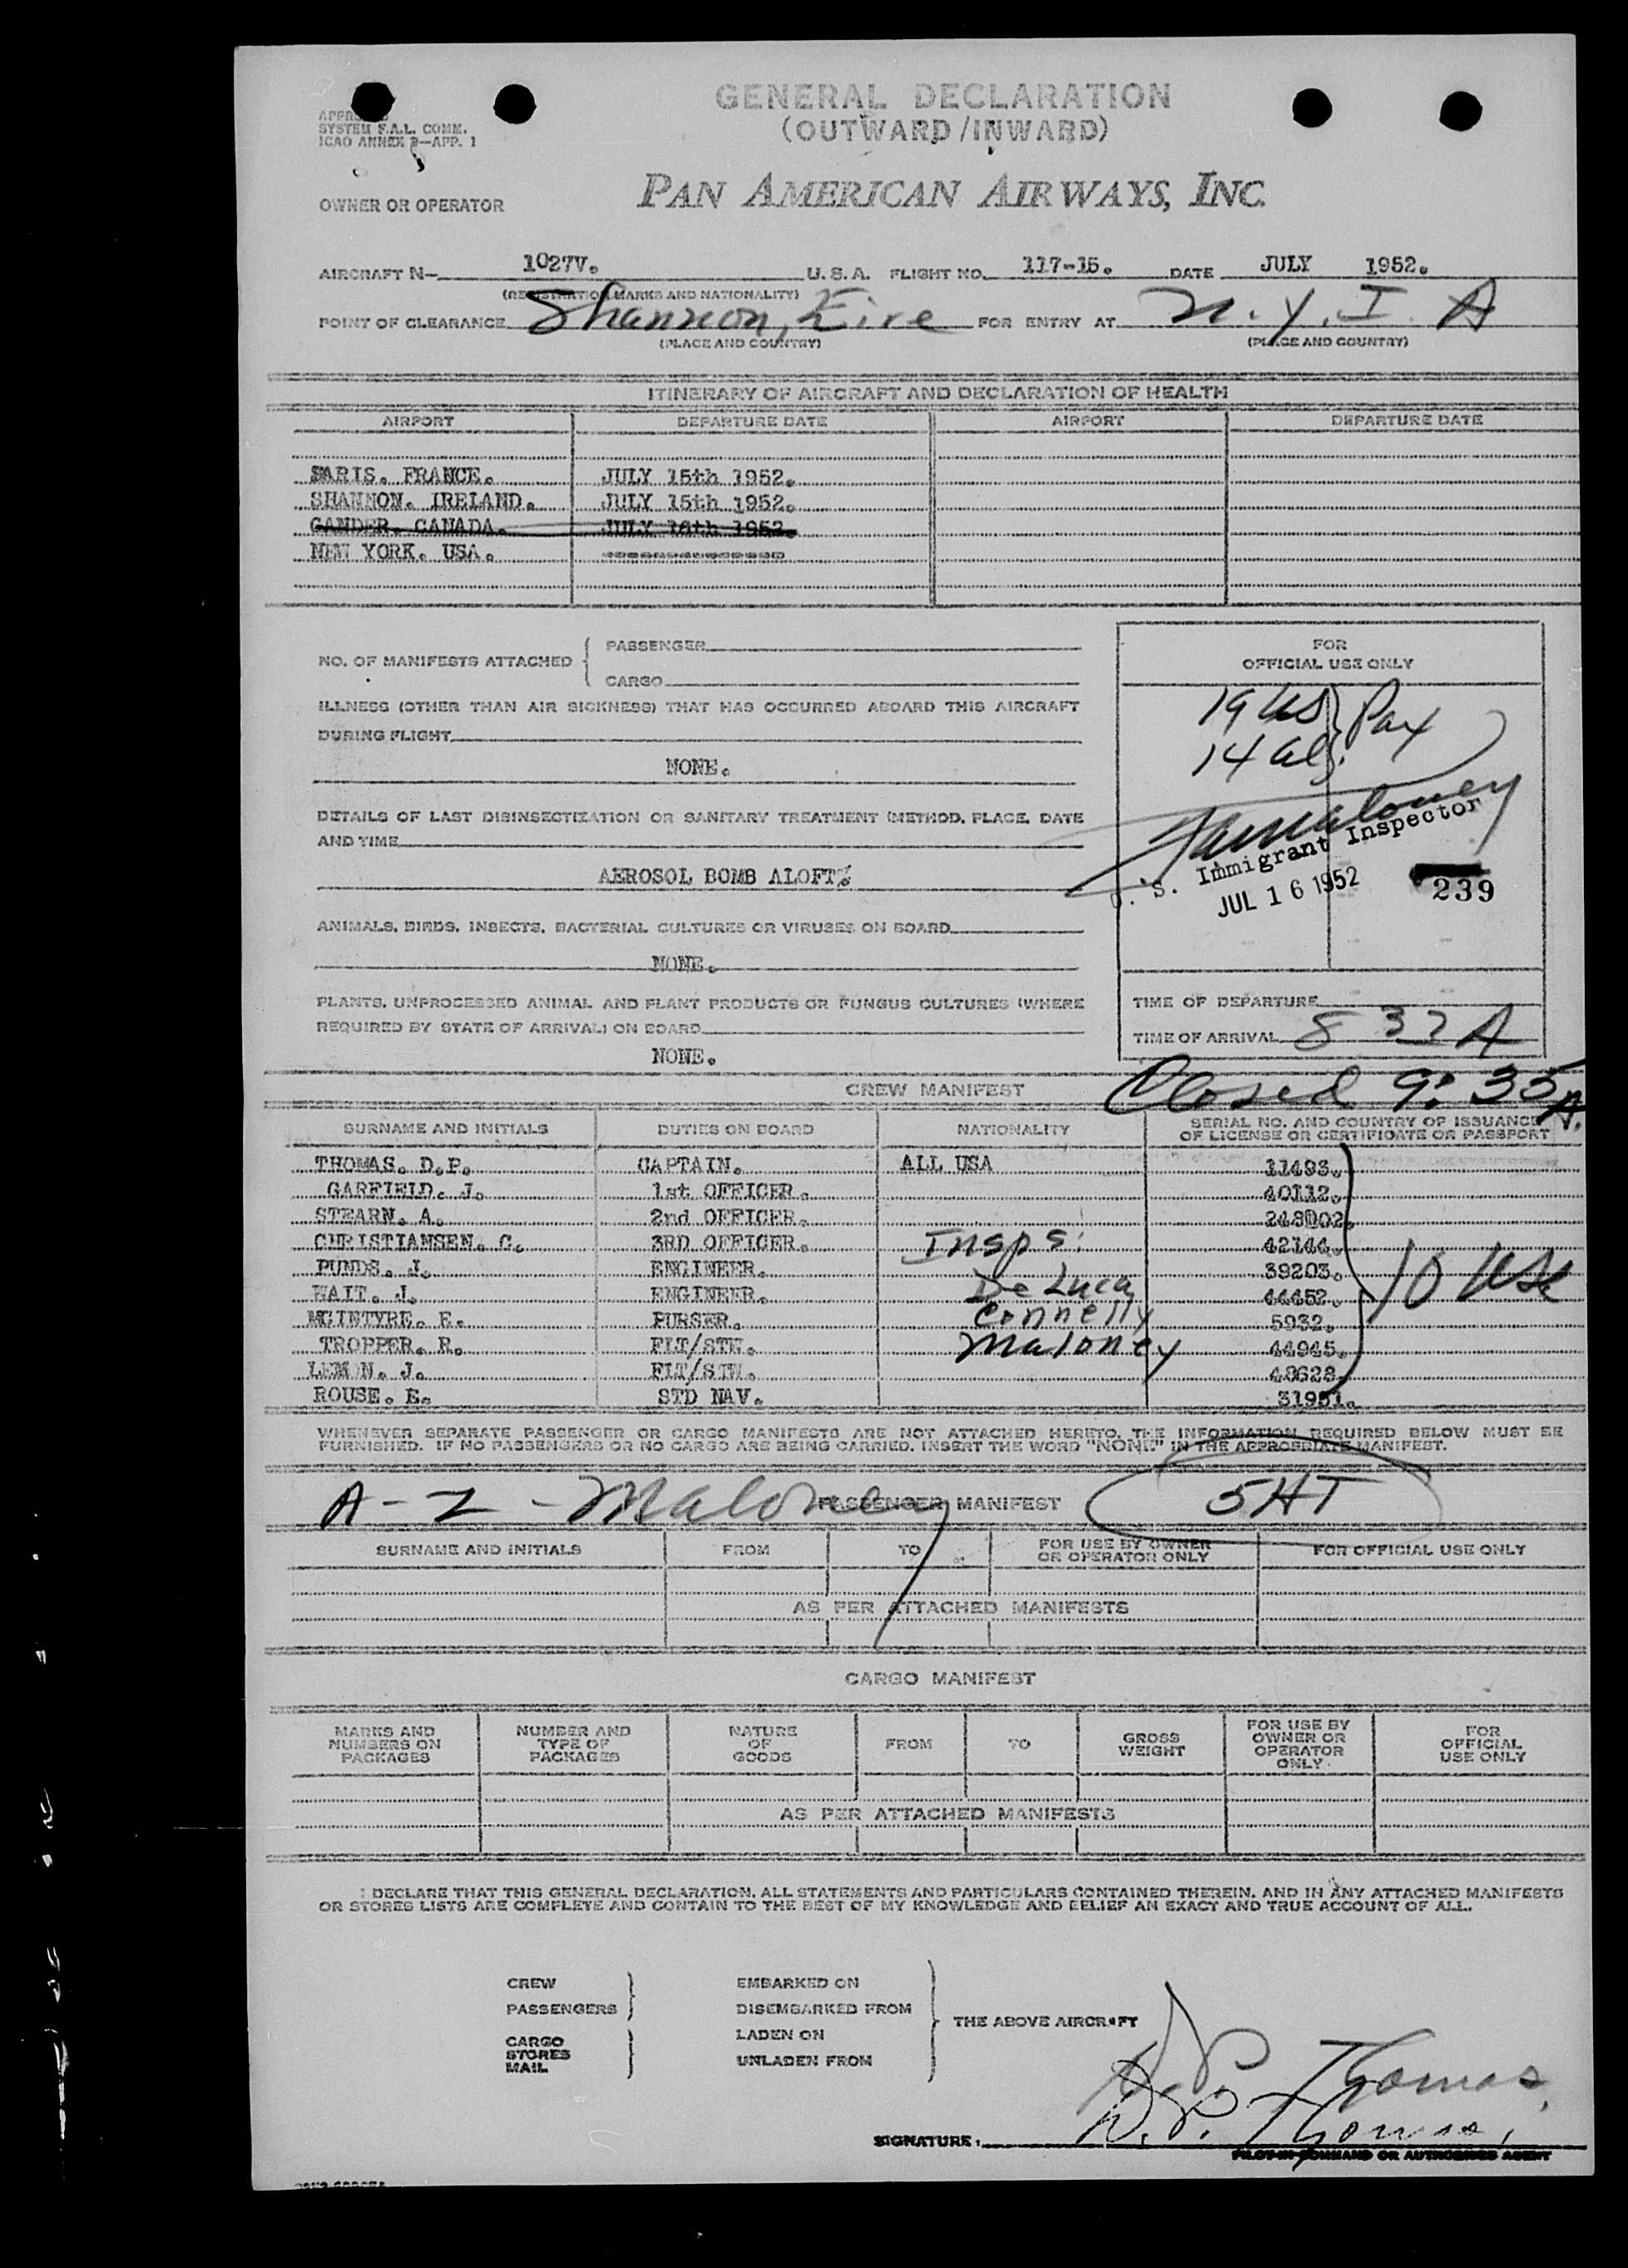 GENERAL DECLARATION
(OUTWARD/INWARD)
SYSTEM F.A.L. COMM.
ICAO ANNEX 9—APP. 1
OWNER OR OPERATOR PAN AMERICAN AIRWAYS, INC.
AIRCRAFT N- 1027V. U.S.A. FLIGHT NO. 117-15. DATE JULY 1952.
(REGISTRATION MARKS AND NATIONALITY)
POINT OF CLEARANCE Shannon, Eire FOR ENTRY AT N.Y.I.A
(PLACE AND COUNTRY) (PLACE AND COUNTRY)
ITINERARY OF AIRCRAFT AND DECLARATION OF HEALTH
AIRPORT DEPARTURE DATE AIRPORT DEPARTURE DATE
PARIS. FRANCE. JULY 15th 1952.
SHANNON. IRELAND. JULY 15th 1952.
GANDER. CANADA. JULY 16th 1952.
NEW YORK. USA. ---------------
NO. OF MANIFESTS ATTACHED { PASSENGER
CARGO
FOR
OFFICIAL USE ONLY
19 US } Pax
14 al
ILLNESS (OTHER THAN AIR SICKNESS) THAT HAS OCCURRED ABOARD THIS AIRCRAFT
DURING FLIGHT
NONE.
DETAILS OF LAST DISINSECTIZATION OR SANITARY TREATMENT (METHOD, PLACE, DATE
AND TIME
AEROSOL BOMB ALOFT.
Maloney
U.S. Immigrant Inspector
JUL 16 1952 239
ANIMALS, BIRDS, INSECTS, BACTERIAL CULTURES OR VIRUSES ON BOARD
NONE.
PLANTS, UNPROCESSED ANIMAL AND PLANT PRODUCTS OR FUNGUS CULTURES (WHERE
REQUIRED BY STATE OF ARRIVAL) ON BOARD
NONE.
TIME OF DEPARTURE
TIME OF ARRIVAL 8 32 A
Closed 9:35 A.
CREW MANIFEST
SURNAME AND INITIALS DUTIES ON BOARD NATIONALITY SERIAL NO. AND COUNTRY OF ISSUANCE
OF LICENSE OR CERTIFICATE OR PASSPORT
THOMAS. D.P. CAPTAIN. ALL USA 11493.
GARFIELD. J. 1st OFFICER. 40112.
STEARN. A. 2nd OFFICER. 248002.
CHRISTIANSEN. C. 3RD OFFICER. Insps. 42144.
PUNDS. J. ENGINEER. 39203.
WAIT. J. ENGINEER. De Luca 44452. 10 USC
MCINTYRE. E. PURSER. Connelly 5932.
TROPPER. R. FLT/STW. Maloney 44945.
LEMON. J. FLT/STW. 48628.
ROUSE. E. STD NAV. 31951.
WHENEVER SEPARATE PASSENGER OR CARGO MANIFESTS ARE NOT ATTACHED HERETO, THE INFORMATION REQUIRED BELOW MUST BE
FURNISHED. IF NO PASSENGERS OR NO CARGO ARE BEING CARRIED, INSERT THE WORD "NONE" IN THE APPROPRIATE MANIFEST.
A-Z - Maloney PASSENGER MANIFEST 5HT
SURNAME AND INITIALS FROM TO FOR USE BY OWNER
OR OPERATOR ONLY FOR OFFICIAL USE ONLY
AS PER ATTACHED MANIFESTS
CARGO MANIFEST
MARKS AND
NUMBERS ON
PACKAGES
NUMBER AND
TYPE OF
PACKAGES
NATURE
OF
GOODS
FROM
TO
GROSS
WEIGHT
FOR USE BY
OWNER OR
OPERATOR
ONLY
FOR
OFFICIAL
USE ONLY
AS PER ATTACHED MANIFESTS
I DECLARE THAT THIS GENERAL DECLARATION, ALL STATEMENTS AND PARTICULARS CONTAINED THEREIN, AND IN ANY ATTACHED MANIFESTS
OR STORES LISTS ARE COMPLETE AND CONTAIN TO THE BEST OF MY KNOWLEDGE AND BELIEF AN EXACT AND TRUE ACCOUNT OF ALL.
CREW
PASSENGERS
CARGO
STORES
MAIL
EMBARKED ON
DISEMBARKED FROM
LADEN ON
UNLADEN FROM
THE ABOVE AIRCRAFT
D.P. Thomas.
D.P. Thomas.
SIGNATURE:
PILOT-IN-COMMAND OR AUTHORISED AGENT